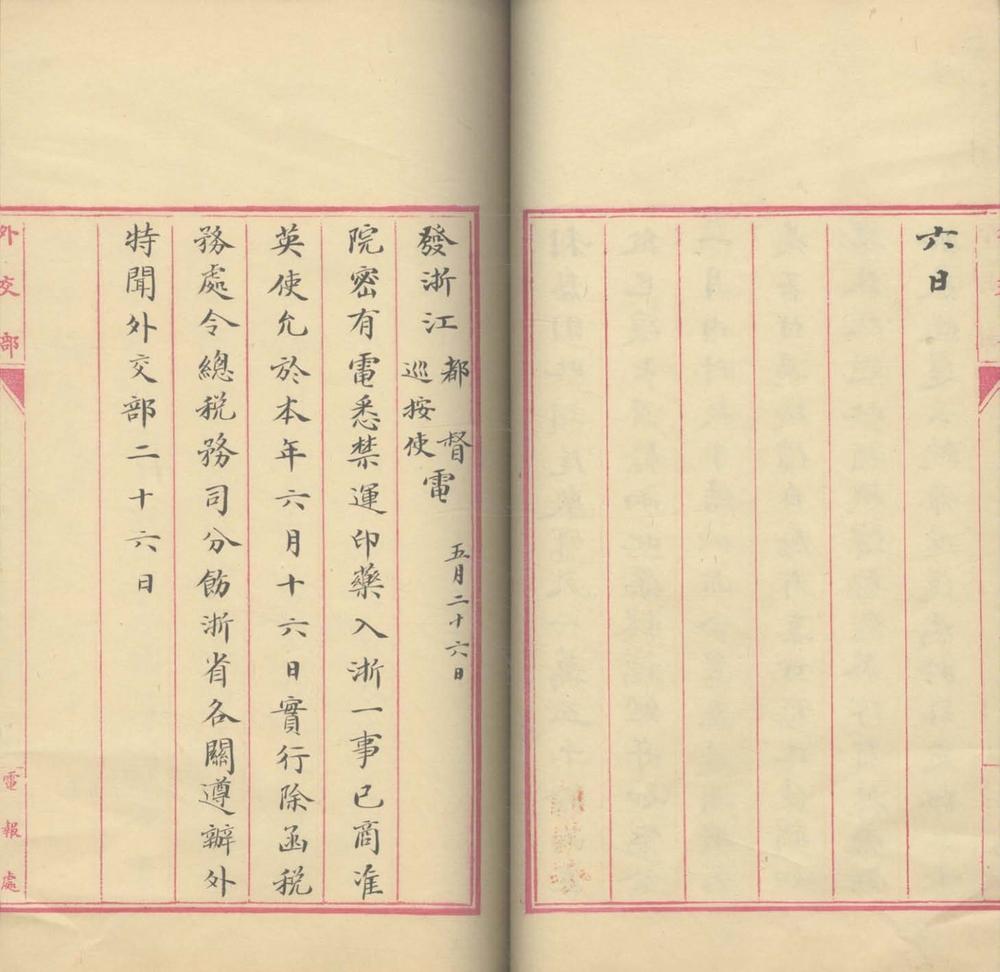 六日
發浙江都督巡按使電 五月二十六日
院密有電悉禁運印藥入浙一事已商准
英使允於本年六月十六日實行除函税
務處令總税務司分飭浙省各關遵辦外
特聞外交部二十六日
外交部
電報處